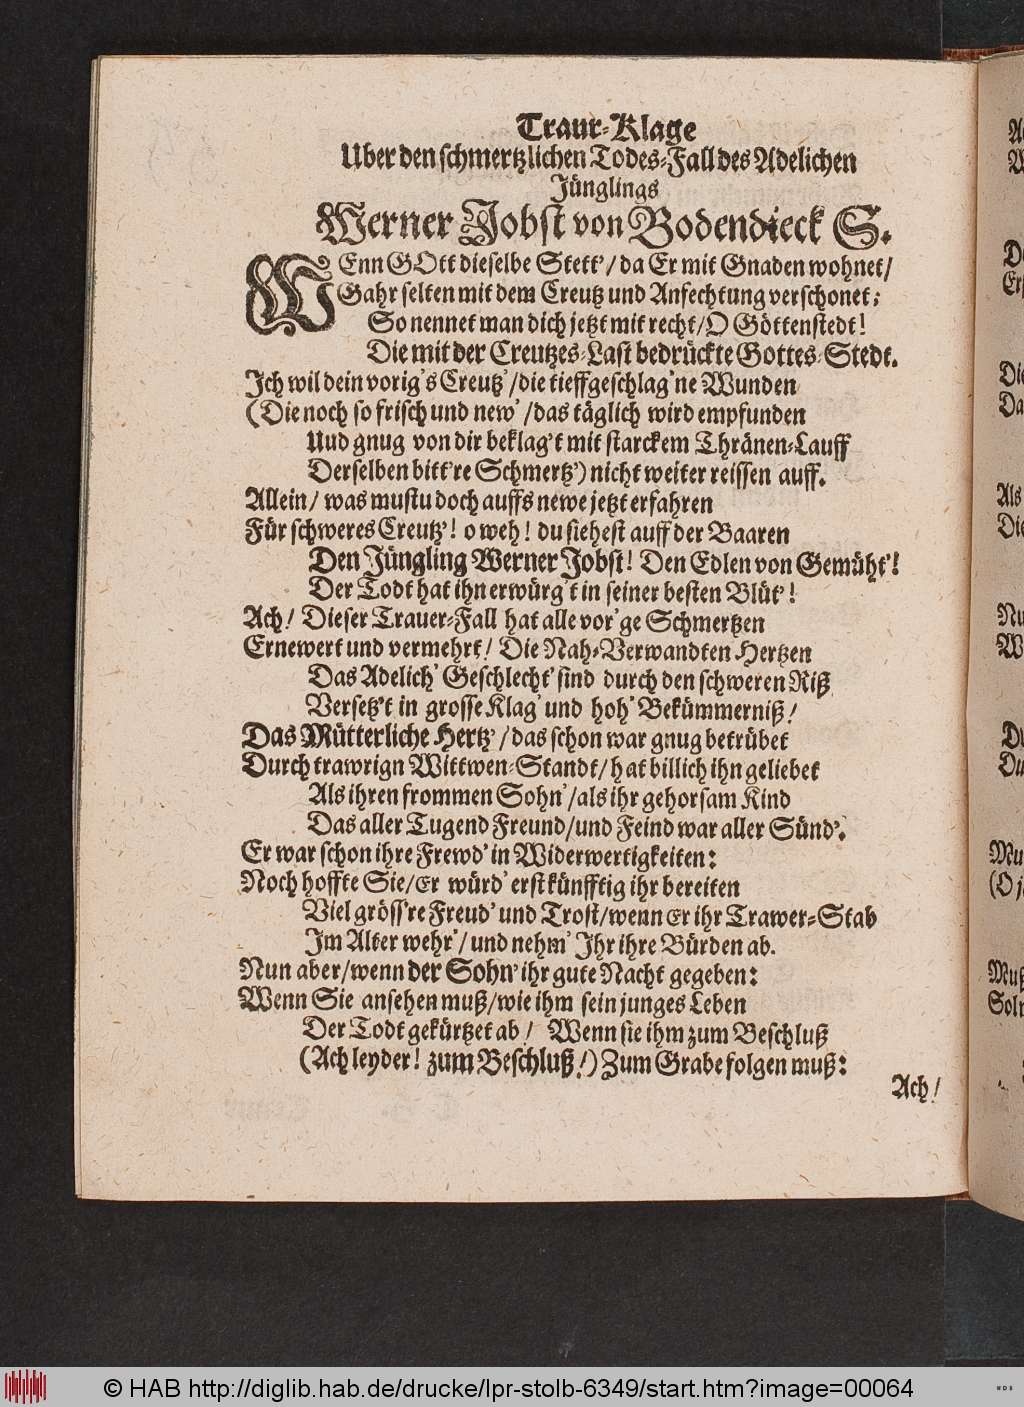 Traur-Klage
Uber den schmertzlichen Todes-Fall des Adelichen
Jünglings
Werner Jobst von Bodendieck S.
WEnn GOtt dieselbe Stett'/ da Er mit Gnaden wohnet/
Gahr selten mit dem Creutz und Anfechtung verschonet;
So nennet man dich jetzt mit recht/ O Göttenstedt!
Die mit der Creutzes-Last bedrückte Gottes-Stedt.
Ich wil dein vorig's Creutz'/ die tieffgeschlag'ne Wunden
(Die noch so frisch und new'/ das täglich wird empfunden
Uud gnug von dir beklag't mit starckem Thränen-Lauff
Derselben bitt're Schmertz') nicht weiter reissen auff.
Allein/ was mustu doch auffs newe jetzt erfahren
Für schweres Creutz'! o weh! du siehest auff der Baaren
Den Jüngling Werner Jobst! Den Edlen von Gemüht'!
Der Todt hat ihn erwürg't in seiner besten Blüt'!
Ach! Dieser Trauer-Fall hat alle vor'ge Schmertzen
Ernewert und vermehrt! Die Nah-Verwandten Hertzen
Das Adelich' Geschlecht' sind durch den schweren Riß
Versetz't in grosse Klag' und hoh' Bekümmerniß!
Das Mütterliche Hertz'/ das schon war gnug betrübet
Durch trawrign Wittwen-Standt/ hat billich ihn geliebet
Als ihren frommen Sohn'/ als ihr gehorsam Kind
Das aller Tugend Freund/ und Feind war aller Sünd'.
Er war schon ihre Frewd' in Widerwertigkeiten:
Noch hoffte Sie/ Er würd' erst künfftig ihr bereiten
Viel gröss're Freud' und Trost/ wenn Er ihr Trawer-Stab
Im Alter wehr'/ und nehm' Ihr ihre Bürden ab.
Nun aber/ wenn der Sohn' ihr gute Nacht gegeben:
Wenn Sie ansehen muß/ wie ihm sein junges Leben
Der Todt gekürtzet ab/ Wenn sie ihm zum Beschluß
(Ach leyder! zum Beschluß!) Zum Grabe folgen muß:
Ach!
© HAB http://diglib.hab.de/drucke/lpr-stolb-6349/start.htm?image=00064